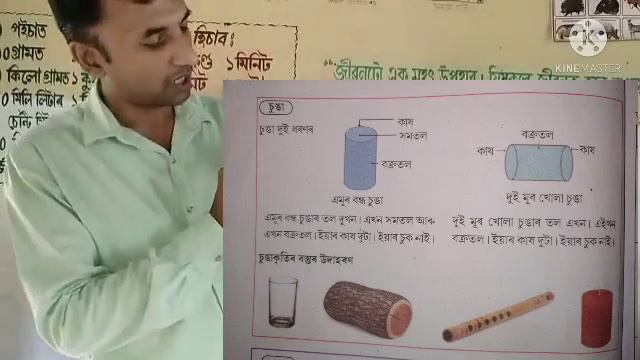 পইচাত
গ্ৰামত
কিলো গ্ৰামত ১
মিলি লিটাৰ
হিচাব:
১মিনিট
"জীৱনটো এক মহৎ উপহাৰ।
KINEMASTER
চুঙা
চুঙা দুই ধৰণৰ
কাষ
সমতল
বক্ৰতল
এমূৰ বন্ধ চুঙা
বক্ৰতল
কাষ
কাষ
দুই মূৰ খোলা চুঙা
এমূৰ বন্ধ চুঙাৰ তল দুখন। এখন সমতল আৰু
এখন বক্ৰতল। ইয়াৰ কাষ দুটা। ইয়াৰ চুক নাই।
দুই মূৰ খোলা চুঙাৰ তল এখন। এইখন
বক্ৰতল। ইয়াৰ কাষ দুটা। ইয়াৰ চুক নাই।
চুঙাকৃতিৰ বস্তুৰ উদাহৰণ